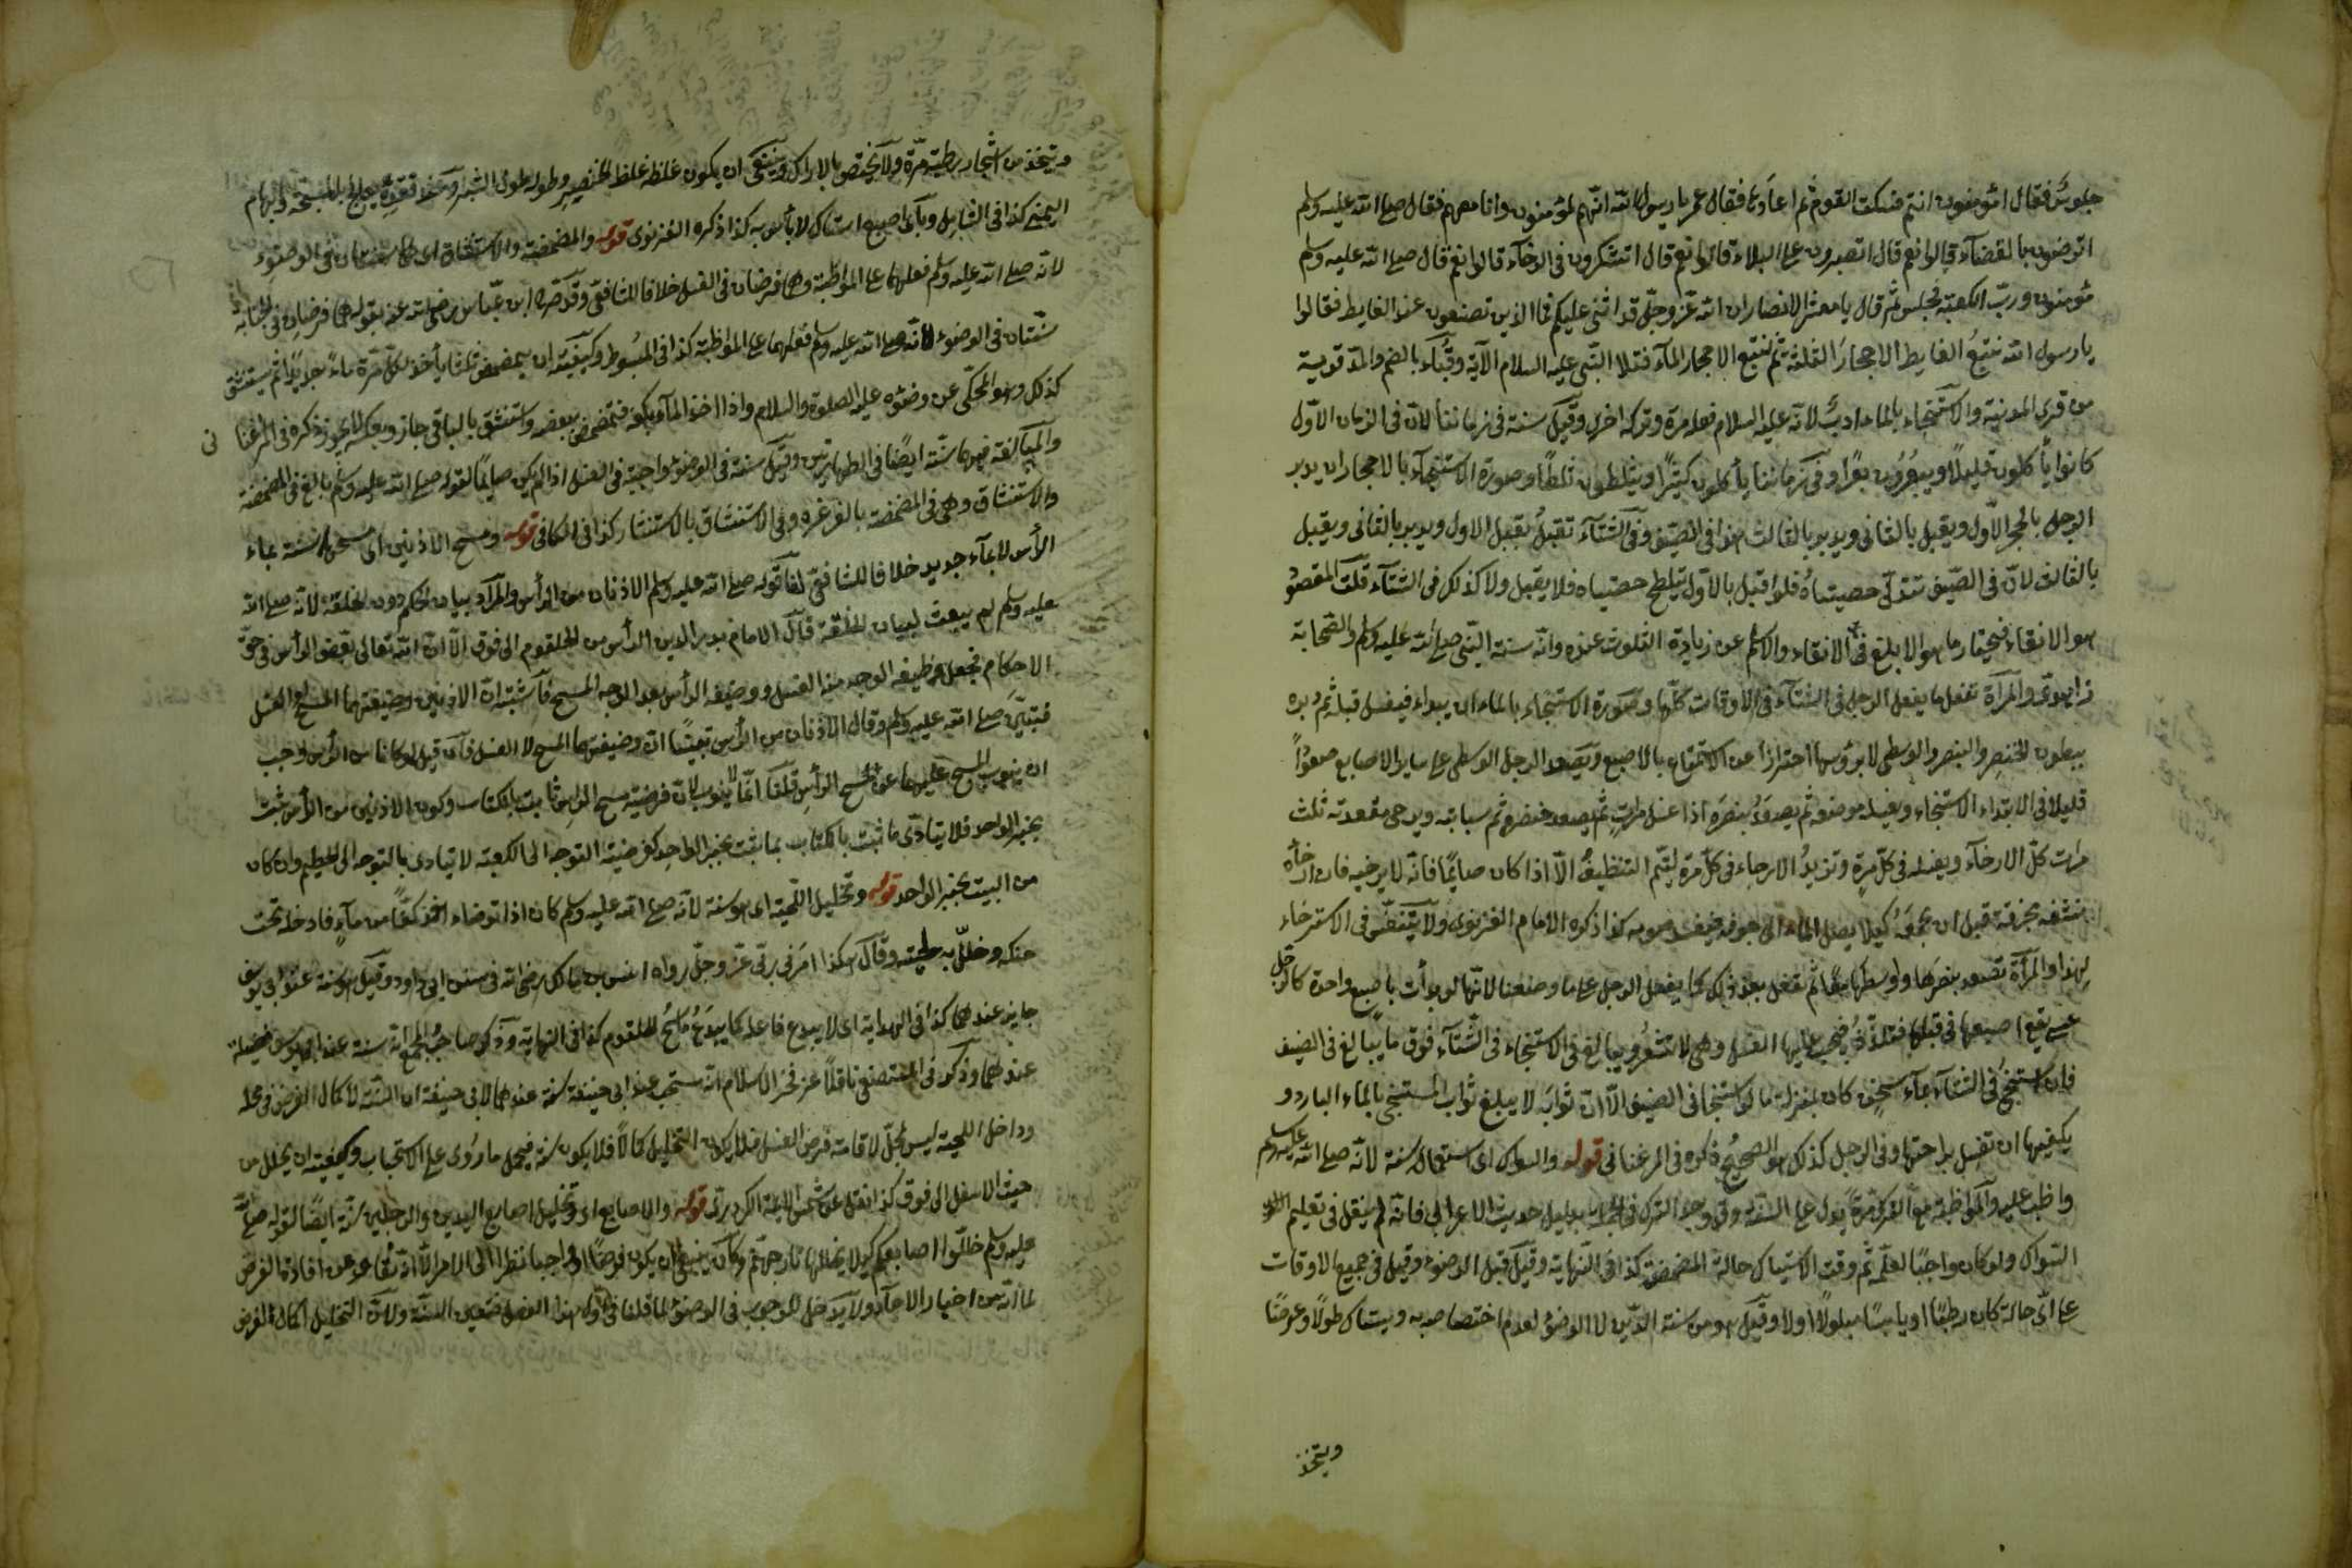 جلوس فقال امؤمنون انتم فسكت القوم ثم اعادها فقال عمر يا رسول الله انهم لمؤمنون وانا معهم فقال صلى الله عليه وسلم
اترضون بالقضاء قالوا نعم قال اتصبرون على البلاء قالوا نعم قال اتشكرون في الرخاء قالوا نعم قال صلى الله عليه وسلم
مؤمنون ورب الكعبة فجلس ثم قال يا معشر الانصار ان الله عز وجل قد اثنى عليكم فما الذين تصنعون عند الغايط فقالوا
يا رسول الله نتبع الغايط الاحجار الثلثة ثم نتبع الاحجار الماء فتلا النبي عليه السلام الآية وقباء بالضم والمد قوية
من قرى المدينة والاستنجاء بالماء ادب لانه عليه السلام فعله مرة وتركه اخرى وقيل سنة في زماننا لان في الزمان الاول
كانوا يأكلون قليلا ويبعرون بعرا وفي زماننا يأكلون كثيرا ويثلطون ثلطا وصورة الاستنجاء بالاحجار ان يدبر
الرجل بالحجر الاول ويقبل بالثانى ويدبر بالثالث هذا في الصيف وفي الشتاء تقبل يقبل الاول ويدبر بالثانى ويقبل
بالثالث لان في الصيف تتدلى خصيتاه فلو اقبل بالاول يتلطخ خصيتاه فلا يقبل ولا كذلك في الشتاء قلت المقصود
هو الانقاء فيختار ما هو الابلغ في الانقاء والاسلم عن زيادة التلوث عنده وانه سنة النبي صلى الله عليه وسلم والصحابة
زاهدي والمرأة تفعل ما يفعل الرجل في الشتاء في الاوقات كلها وصورة الاستنجاء بالماء ان يبداء فيغسل قبله ثم دبره
ببطون الخنصر والبنصر والوسطى لا برؤسها احترازا عن الاستمتاع بالاصبع ويصعد الرجل الوسطى على ساير الاصابع صعودا
قليلا في الابتداء الاستنجاء ويغسل موضعه ثم يصعد بنصره اذا غسل مرات ثم يصعد خنصره ثم سبابته ويرخى مقعدته ثلث
مرات كل الارخاء ويغسله في كل مرة وتزيد الارخاء في كل مرة ليتم التنظيف الا اذا كان صايما فانه لا يرخيه فان ارخاه
ينشفه بخرقة قبل ان يجمعه كيلا يصل الماء الى جوفه فيفسد صومه كذا ذكره الامام الغزنوي ولا يتنفس في الاسترخاء
لهذا والمرأة تصعد بنصرها واوسطها معا ثم تفعل بعد ذلك كما يفعل الرجل على ما وصفنا لانها لو بدأت باصبع واحدة كالرجل
عسى يقع اصبعها في قبلها فتلذذ فيجب عليها الغسل وهي لا تشعر ويبالغ في الاستنجاء في الشتاء فوق ما يبالغ في الصيف
فان استنجى في الشتاء بماء سخين كان بمنزلة ما لو استنجا في الصيف الا ان ثوابه لا يبلغ ثواب المستنجي بالماء البارد و
يكفيها ان تغسل براحتها وفي الرجل كذلك هو الصحيح ذكره في المرغناني قوله والسواك اى استعماله سنة لانه صلى الله عليه وسلم
واظب عليه والمواظبة مع الترك مرة يدل على السنة وقد وجد الترك في الجملة بدليل حديث الاعرابي فانه لم ينقل في تعليم
السواك ولو كان واجبا لعلمه ثم وقت الاستياك حالة المضمضة كذا في النهاية وقيل قبل الوضوء وقيل في جميع الاوقات
على اى حالة كان رطبا او يابسا مبلولا او لا وقيل هو من سنة الدين لا الوضوء لعدم اختصاصه به ويستاك طولا وعرضا
ويتخذ
ويتخذ من اشجار رطبة مرة ولا يختص بالاراك وينبغي ان يكون غلظه غلظ الخنصر وطوله طول الشبر بالمسبحة والابهام
اليمنى كذا في الشامل وبأى اصبع استاك لا بأس به كذا ذكره الغزنوى قوله والمضمضة والاستنشاق اى هما سنتان في الوضوء
لانه صلى الله عليه وسلم فعلهما على المواظبة وهما فرضان في الغسل خلافا للشافعى وقد صح ابن عباس رضى الله عنه بقوله هما فرضان في الجنابة
سنتان في الوضوء لانه صلى الله عليه وسلم فعلهما على المواظبة كذا في المبسوط وكيفيته ان يمضمض ثلثا يأخذ لكل مرة ماء جديدا ثم يستنشق
كذلك وهو المحكى عن وضوءه عليه الصلوة والسلام واذا اخذ الماء بكفه فتمضمض ببعضه واستنشق بالباقى جاز وبعكسه لا يجوز ذكره في المرغنا نى
والمبالغة فيهما سنة ايضا في الطهارتين وقيل سنة في الوضوء واجبة في الغسل اذا لم يكن صايما لقوله صلى الله عليه وسلم بالغ في المضمضة
والاستنشاق وهى في المضمضة بالغرغرة وفي الاستنشاق بالاستنثار كذا في الكافى قوله ومسح الاذنين اى مسحهما سنة بماء
الرأس لا بماء جديد خلافا للشافعى لنا قوله صلى الله عليه وسلم الاذنان من الرأس والمراد بيان الحكم دون الخلقة لانه صلى الله
عليه وسلم لم يبعث لبيان الخلقة قال الامام بدر الدين الرأس من الحلقوم الى فوق الا ان الله تعالى بعض الرأس في حق
الاحكام فجعل وظيفة الوجه منه الغسل ووضيفة الرأس بعد الوجه المسح فاشتبه ان الاذنين وضيفتهما المسح او الغسل
فبين صلى الله عليه وسلم وقال الاذنان من الرأس تبيينا ان وضيفتهما المسح لا الغسل فان قيل لو كانا من الرأس وجب
ان ينوب المسح عليهما عن مسح الرأس قلنا انما لا ينوب لان فرضية مسح الراس ثابت بالكتاب وكون الاذنين من الرأس ثبت
بخبر الواحد فلا يتادى ما ثبت بالكتاب بما ثبت بخبر الواحد كفرضية التوجه الى الكعبة لا يتادى بالتوجه الى الحطيم وان كان
من البيت بخبر الواحد قوله وتخليل اللحية اى هو سنة لانه صلى الله عليه وسلم كان اذا توضاء اخذ كفا من ماء فادخله تحت
حنكه وخلل به لحيته وقال هكذا امرنى ربى عز وجل رواه انس بن مالك رضى الله في سنن ابى داود وقيل هو سنة عند ابى يوسف
جايز عندهما كذا في الهداية اى لا يبدع فاعله كما يبدع ماسح الحلقوم كذا في النهاية وذكر صاحب المجمع انه سنة عند ابى يوسف فضيلة
عندهما وذكر في المستصفى ناقلا عن فخر الاسلام انه مستحب عند ابى حنيفة سنة عندهما لابى حنيفة ان السنة لاكمال الفرض في محله
وداخل اللحية ليس بمحل لاقامة فرض الغسل فلا يكون التخليل اكمالا فلا يكون سنة فيحمل ما روى على الاستحباب وكيفيته ان يخلل من
حيث الاسفل الى فوق كذا نقل عن شمس الايمة الكردرى قوله والاصابع اى وتخليل اصابع اليدين والرجلين سنة ايضا لقوله صلى الله
عليه وسلم خللوا اصابعكم كيلا يتخللها نار جهنم وكان ينبغى ان يكون فرضا او واجبا نظرا الى الامر الا افادة الفرض
لما انه من اخبار الاحاد ولا يدخل للوجوب في الوضوء لما قلنا في اول هذا الفصل فتعين السنة ولان التخليل اكمال الفرض